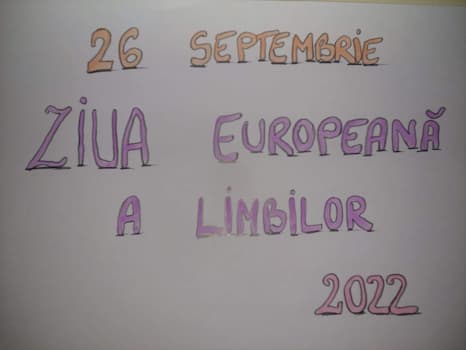 26 SEPTEMBRIE
ZiUA EUROPEANĂ
A LiMBiLOR
2022